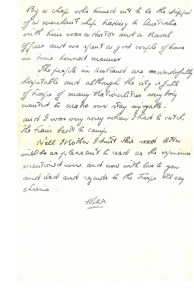 By a chap who turned out to be the skipper
of a merchant ship trading to Australia
with him was a doctor and a naval
officer and we spent a good couple of hours
in time honoured manner.
The people in Scotland are wonderfully
hospitable and although the city is full
of troops of many Nationalities everybody
wanted to make our stay enjoyable
and I was very sorry when I had to catch
the train back to camp.
Well Mother I trust this next letter
will be as pleasant to read as the
mentioned were and now with love to you
and dad and regards to the troops I'll say
cheerio.